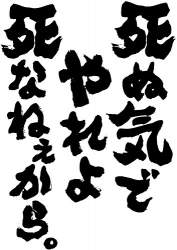 死ぬ気で
やれよ
死なねぇから。